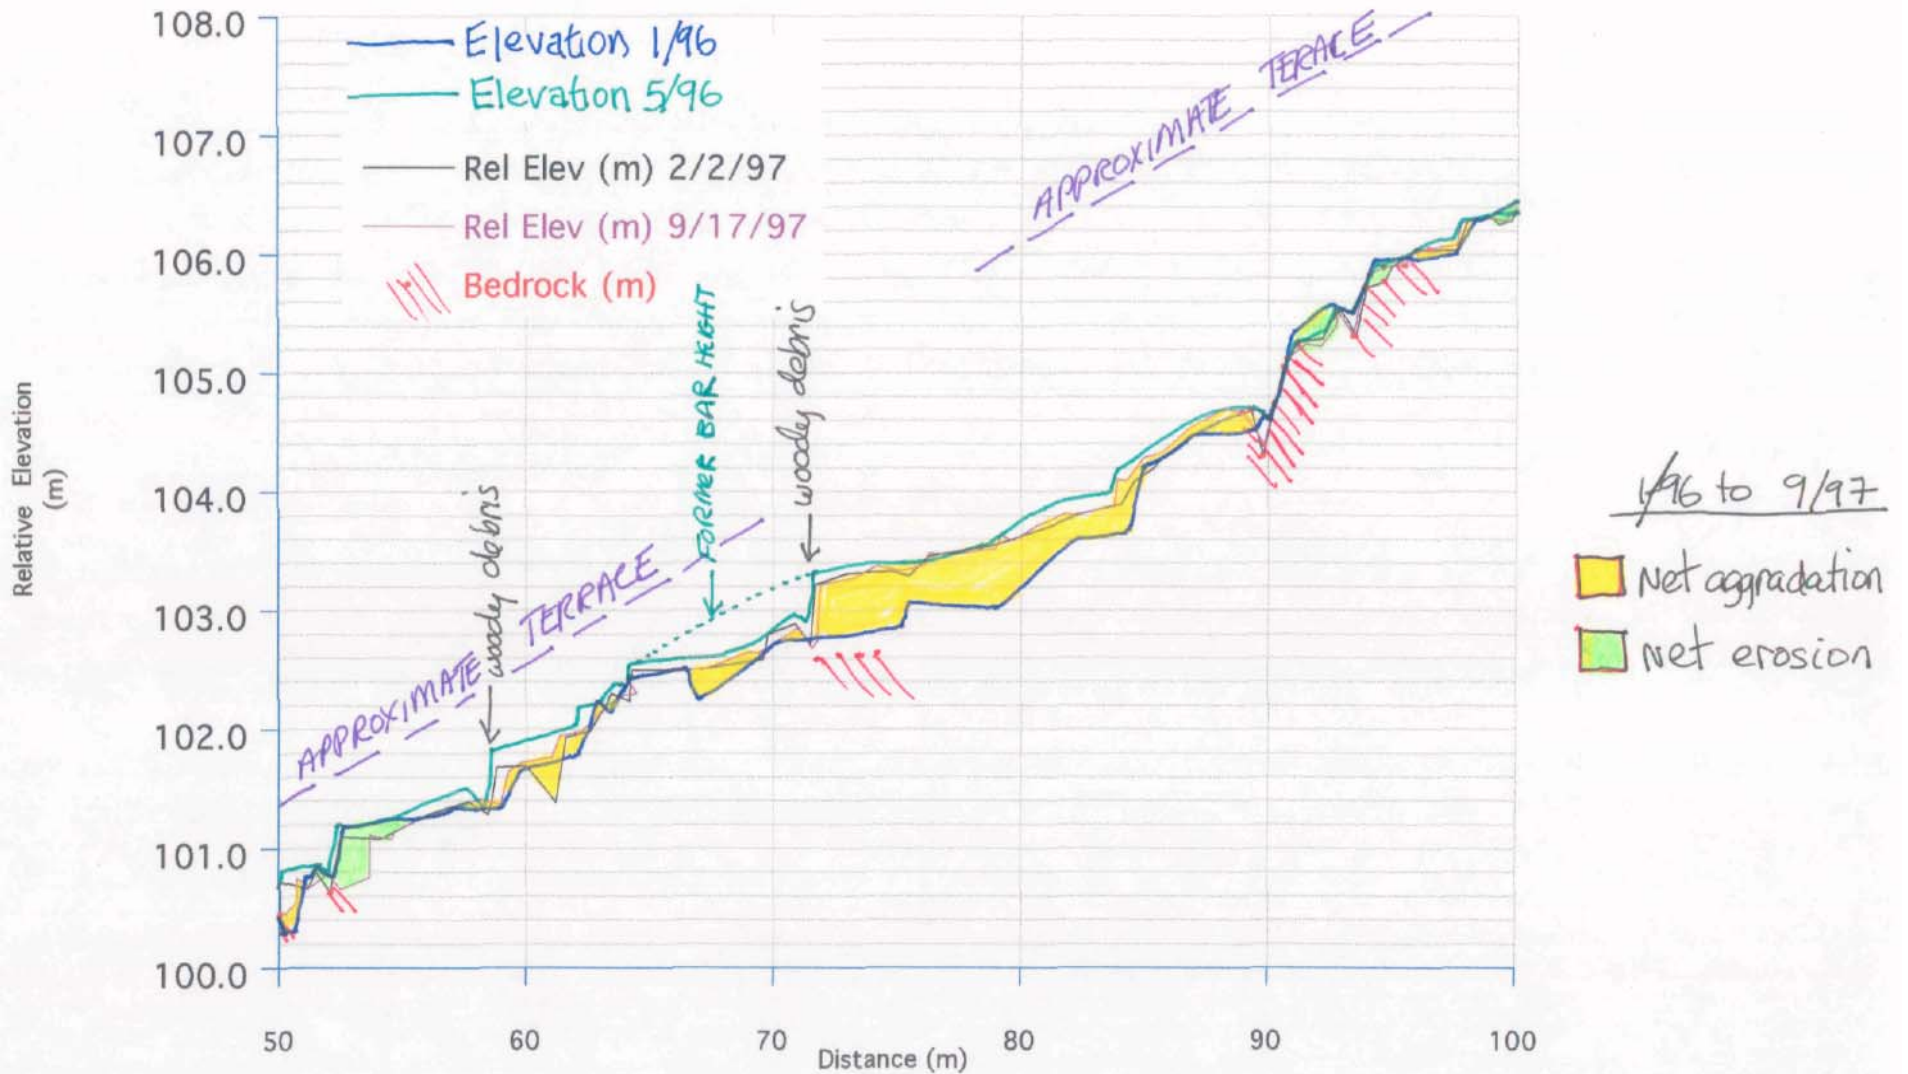 108.0
107.0
106.0
105.0
104.0
103.0
102.0
101.0
100.0
Relative Elevation
(m)
Elevation 1/96
Elevation 5/96
Rel Elev (m) 2/2/97
Rel Elev (m) 9/17/97
Bedrock (m)
APPROXIMATE TERRACE
woody debris
FORMER BAR HEIGHT
woody debris
APPROXIMATE TERACE
1/96 to 9/97
Net aggradation
Net erosion
50
60
70
80
90
100
Distance (m)